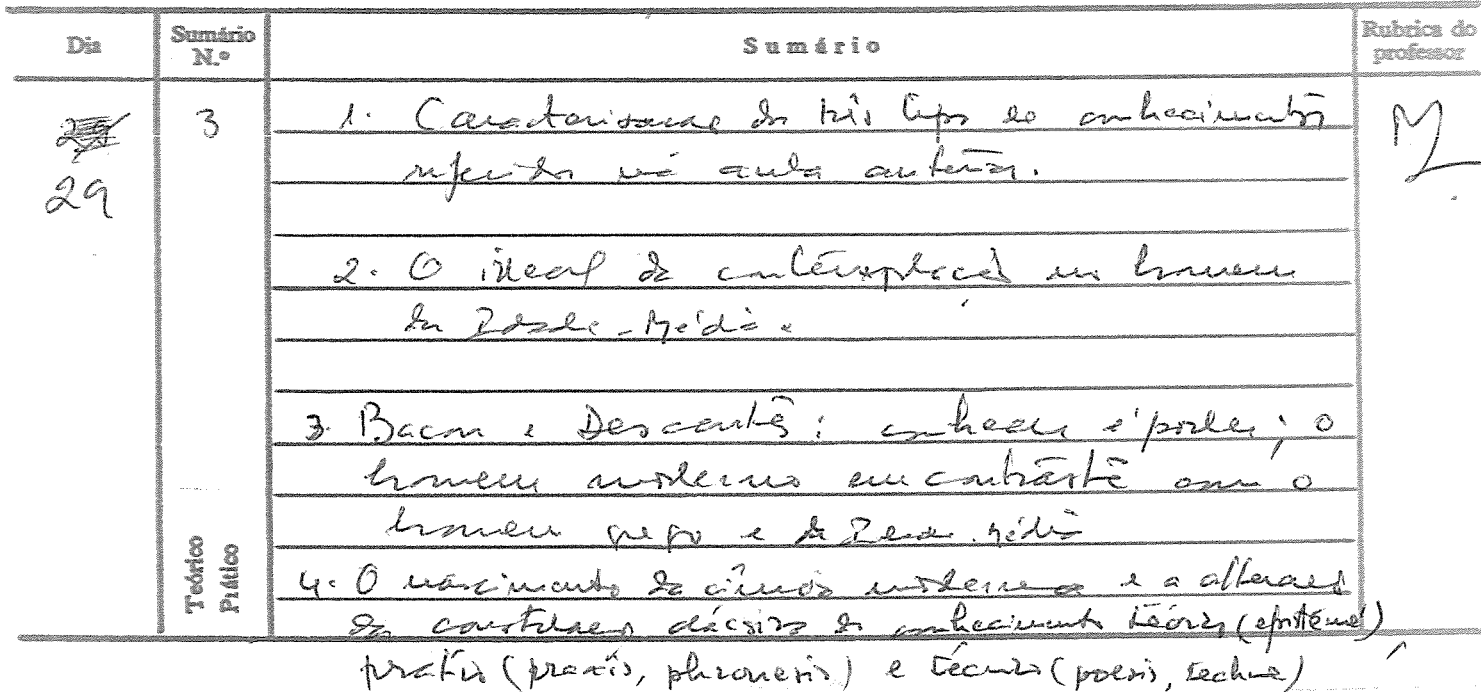 Dia
Sumário N.º
Sumário
Rubrica do professor
29
3
1. Caracterização dos três tipos de conhecimentos
referidos na aula anterior.
2. O ideal da contemplação no homem
da Idade-Média.
3. Bacon e Descartes: conhecer é poder; o
homem moderno em contraste com o
homem grego e da Idade Média
4. O nascimento da ciência moderna e a alteração
da constelação clássica do conhecimento teórico (epistéme)
prático (praxis, phronesis) e técnico (poesis, techne)
Teórico
Prático